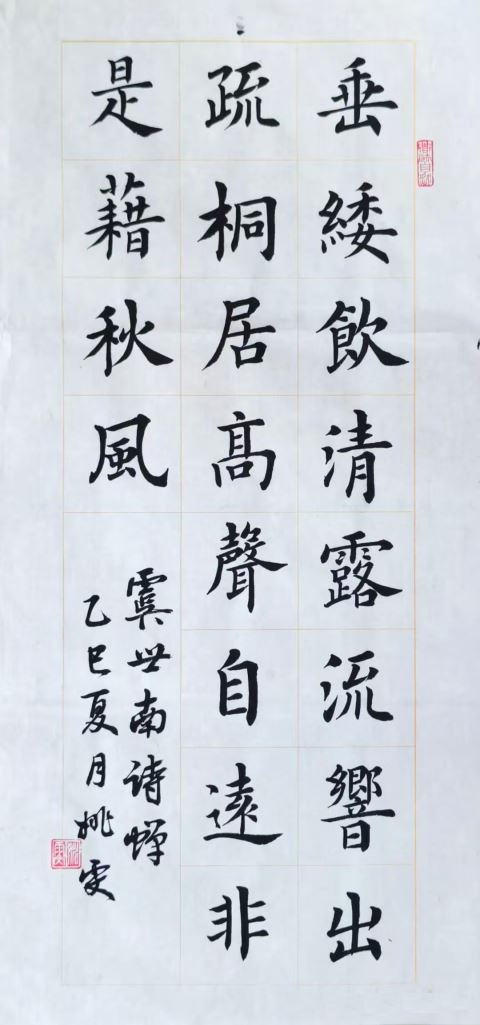 垂緌飲清露流響出
疏桐居高聲自遠非
是藉秋風
虞世南詩蟬
乙巳夏月姚雯